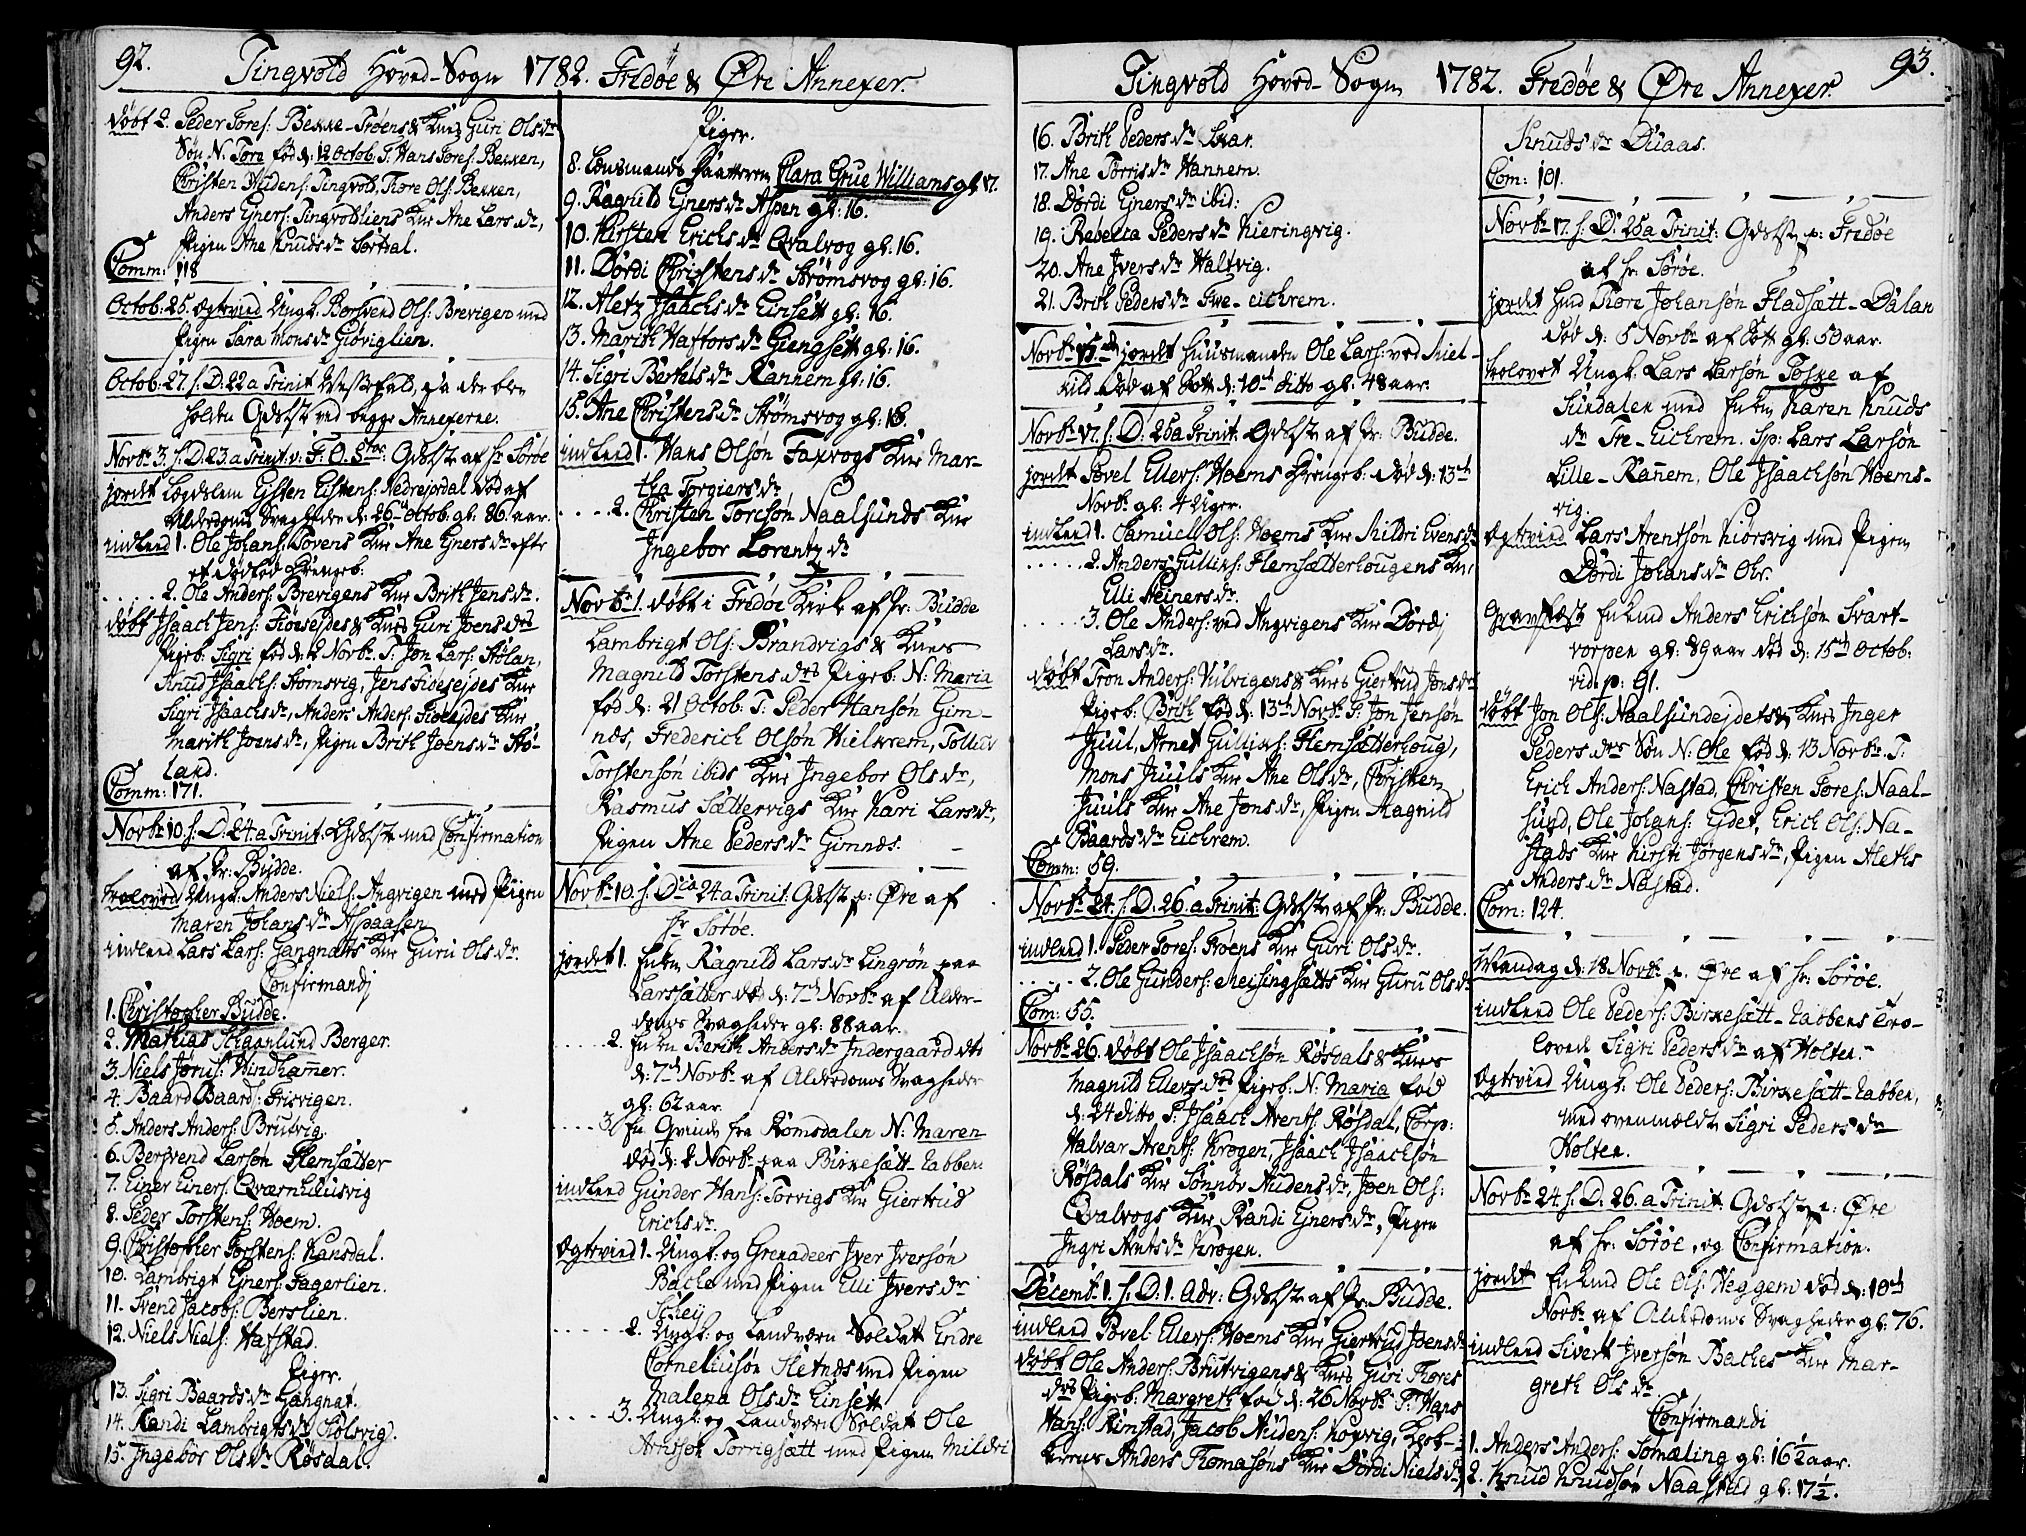 92. Tingvold Hoved-Sogn 1782. Fredøe & Øre Annexer.
døbt 2. Peder Tores: Bekke-Trøens & Kones Guri Olsdr
Søn N. Tore fød d: 12 Octob. T. Hans Tores: Bekken,
Christen Audens: Tingvold, Tore Ols: Bekken,
Anders Ejners: Tingvoldliens Kone Ane Larsdr,
Pigen Ane Knudsdr
Comm: 118
Octob: 25. Egtevied Ungk. Børsvend Ols: Brevigen med
Pigen Sara Monsdr Giøviglien.
Octob: 27. s. D: 22 a Trinit
holden Gdstste ved begge Annexerne.
Novbr 3. s. D. 23. a Trinit. v: F: O. Gdstste af Hr Sorøe
jordet Lægdslem Eisten Eistens: Nedrejordal død af
Alderdoms Svaghed d: 26 Octob. gl: 86 aar.
indleed 1. Ole Johans: Kone Ane Ejnersdr efter
et dødfød
..... 2. Ole Anders: Brevigens Kone Brith Jensdr.
døbt Isaach Jens: Fiøsejdes & Kones Guri Joensdrs
Pigeb: Sigri fød d: 2 Novbr. T: Jon Lars: Stølan,
Knud Isaachs: Stomsvig, Jens Fiøsejdes Kone
Sigri Isaachsdr, Anders Anders: Fiøsejdes Kone
Marith Joensdr, Pigen Brith Joensdr Stø-
land.
Comm: 171.
Novbr 10. s. D. 24. a Trinit. Gdstste med Confirmation
af Pr. Budde.
trolovede Ungk. Anders Niels: Angvigen med Pigen
Maren Johansdr Aspaasen
indleed Lars Lars: Gangnatts Kone Guru Olsdr.
Confirmandj
1. Christopher Budde.
2. Mathias Berger.
3. Niels Jørus: Windhammer.
4. Baard Baards: Frisvigen.
5. Anders Anders: Brutvig.
6. Bersvend Larsøn Flemsætter
7. Einer Einers: Qværnhuusvig
8. Peder Torstens: Hoem.
9. Christopher Torstens: Kansdal.
10. Lambrigt Ejners: Fagerlien.
11. Svend Jacobs: Berslien.
12. Niels Niels: Hafstad.
Piger.
13. Sigri Baardsdr Gangnat.
14. Randi Lambrigtsdr Stølsvig.
15. Ingebor Olsdr Røsdal.
Piger.
8. Lensmands Clara Grue Williams gl: 17.
9. Ragnild Ejnersdr Aspen gl: 16.
10. Kirsten Erichsdr Qvalvog gl: 16.
11. Dordi Christensdr Strømsvog gl: 16.
12. Aletz Isaachsdr Einsett gl: 16.
13. Marith Haftorsdr Giengsett gl: 16.
14. Sigri Bertelsdr Rannem gl: 16.
15. Ane Christensdr Strømsvog gl: 16.
indleed 1. Hans Olsøn Faxvogs Kone Mar-
tha Torgiersdr
.... 2. Christen Toresøn Naalsunds Kone
Ingebor Lorentzdr
Novbr 1. døbt i Fredøe Kirke af Pr. Budde
Lambrigt Ols: Brandvigs & Kones
Magnild Torstensdrs Pigeb: N: Maria
fød d: 21 Octob. T: Peder Hansøn Gim-
næs, Frederich Olsøn Hielkrem, Tolluv
Torstensøn ibids Kone Ingebor Olsdr,
Rasmus Sættervigs Kone Kari Larsdr,
Pigen Ane Pedersdr Gimnæs.
Novbr 10. s. Dca 24. a Trinit. Gdstste p: Øre af
Hr Sorøe.
jordet 1. Enken Ragnild Larsdr Lingrøn paa
Larssætter død d: 7de Novbr af Alder-
doms Svagheder gl: 88 aar.
..... 2. Enken Berith Andersdr Indergaard død
d: 7de Novbr af Alderdoms Svagheder
gl: 62 aar.
.... 3. En Qvinde fra Romsdalen N: Maren
død d: 2 Novbr paa Birkesætt-Nabben
indleed Gunder Hans: Torvigs Kone Giertrud
Erichsdr.
Egteviede 1. Ungk: og Grenadeer Iver Iversøn
Bache med Pigen Elli Iversdr
..... 2. Ungk: og Landværn Soldat Endre
Corneliusøn Sletnæs med Pigen
Malena Olsdr Einsett
.... 3. Ungk: og Landværn Soldat Ole
Arntsøn Torrigsætt med Pigen Mildri
Tingvold Hoved-Sogn 1782. Fredøe & Øre Annexer. 93.
16. Brith Pedersdr Svar.
17. Ane Torrisdr Hannem.
18. Dordi Ejnersdr ibid:
19. Rebecca Pedersdr Kieringvig.
20. Ane Iversdr Haltvig.
21. Brith Pedersdr Tre-eichrem.
Novbr 15. jordet Huusmanden Ole Lars: ved Miel-
kild død af Sott d: 10de ditto gl: 48 aar.
Novbr 17. s. D: 25 a Trinit. Gdstste af Pr: Budde.
jordet Povel Ellers: Hoems Drengeb: død d: 13de
Novbr gl: 4 Uger.
indleed 1. Samuel Ols: Hoems Kone Mildri Evensdr
..... 2. Anders Gulliks: Flemsætterhougens Kone
Elli Steinersdr.
..... 3. Ole Anders: ved Angvigens Kone Dordj
Larsdr.
døbt Tron Anders: Hulvigens & Kones Giertrud Jonsdrs
Pigeb: Brith fød d: 13de Novbr. T: Jon Jensøn
Juul, Arnet Gulliks: Flemsætterhoug,
Mons Juuls Kone Ane Olsdr, Christen
Juuls Kone Ane Jonsdr, Pigen Magnild
Baardsdr Eichrem.
Comm: 69.
Novbr 24. s. D. 26. a Trinit: Gdstste af Pr. Budde.
indleed 1. Peder Tores: Trøens Kone Guri Olsdr.
..... 2. Ole Gunders: Meisingsætts Kone Guru Olsdr
Com: 55.
Novbr 26. døbt Ole Isaachsøn Røsdals & Kones
Magnild Ellersdrs Pigeb: N: Maria fød
d: 24 ditto T: Isaach Arents: Røsdal, Corp:
Halvar Arents: Krogen, Isaach Isaachsøn
Røsdals Kone Sønnøv Audensdr, Joen Ols:
Qvalvogs Kone Randi Ejnersdr, Pigen
Ingri Arntsdr Krogen.
Decemb: 1. s. D: 1. Adv: Gdstste af Pr: Budde.
indleed Povel Ellers: Hoems Kone Giertrud Joensdr
døbt Ole Anders: Brutvigens & Kones Guri Tores
drs Pigeb: Margreth fød d: 26 Novbr T: Hans
Hans: Rimstad, Jacob Audens: Hopvig,
Anders Thomasøns Kone Dordi Nielsdr
Knudsdr Duaas.
Com: 101.
Novbr 17. s. D: 25 a Trinit: Gdstste p: Fredøe
af Hr. Sorøe.
jordet Tore Johansøn Fladsætt-Dalan
død d: 5 Novbr af Sott gl: 50 aar.
trolovet Ungk. Lars Larsøn Toske af
Sundalen med Enken Karen Knuds
dr Tre-Eichrem. Sp: Lars Larsøn
Lille-Rannem, Ole Isaachsøn Hoems-
vig.
Egteviede Lars Arentsøn Kiørsvig med Pigen
Dordi Johansdr Ohr.
Gravfæst Enkemd Anders Erichsøn Svart-
vorpen gl: 89 aar død d: 15de Octob:
vid. p: 91.
døbt Jon Ols: Naalsundejdets & Kones Inger
Pedersdrs Søn N: Ole fød d: 13 Novbr. T:
Erich Anders: Nastad, Christen Tores: Naal-
sund, Ole Johans: Ejdet, Erich Ols: Na-
stads Kone Kirsti Jørgensdr, Pigen Aleths
Andersdr Nastad.
Com: 124.
Mandag d: 18 Novbr p. Øre af Hr: Sorøe.
indleed Ole Peders: Birkesætt-Nabbens Tro-
lovede Sigri Pedersdr af Holten.
Egteviede Ungk: Ole Peders: Birkesætt-Nabben,
med ovenmældte Sigri Pedersdr
Holten.
Novbr 24. s. D. 26. a Trinit. Gdstste p: Øre
af Hr. Sorøe, og Confirmation.
jordet Enkemd Ole Ols: Heggem død d: 10de
Novbr af Alderdoms Svagheder gl: 76.
indleed Sivert Iversøn Baches Kone Mar-
greth Olsdr.
Confirmandi
1. Anders Anders: Somæling gl: 16 1/2 aar.
2. Knud Knudsøn Naastad gl: 17 1/2.